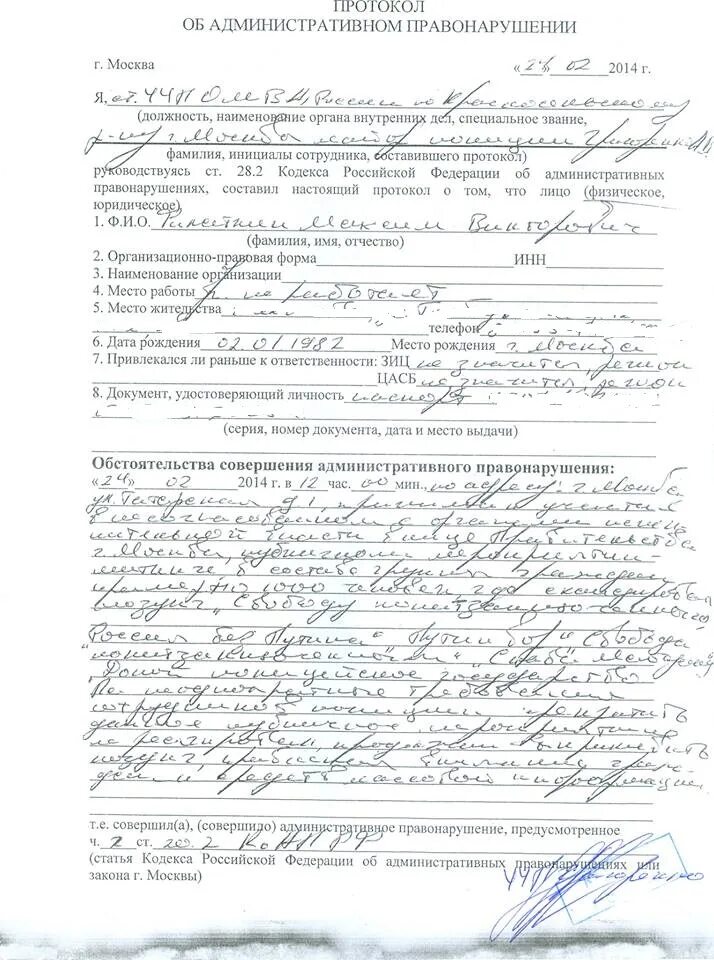 ПРОТОКОЛ
ОБ АДМИНИСТРАТИВНОМ ПРАВОНАРУШЕНИИ
г. Москва « 24 » 02 2014 г.
Я, ст. УУП ОМВД России по Красносельскому
(должность, наименование органа внутренних дел, специальное звание,
р-ну г. Москвы майор полиции
фамилия, инициалы сотрудника, составившего протокол)
руководствуясь ст. 28.2 Кодекса Российской Федерации об административных
правонарушениях, составил настоящий протокол о том, что лицо (физическое,
юридическое)
1. Ф.И.О. Максим Викторович
(фамилия, имя, отчество)
2. Организационно-правовая форма ИНН
3. Наименование организации
4. Место работы не работает
5. Место жительства
телефон
6. Дата рождения 02.01.1982 Место рождения г. Москва
7. Привлекался ли раньше к ответственности: ЗИЦ не значится, регион
ЦАСБ не значится, регион
8. Документ, удостоверяющий личность паспорт
(серия, номер документа, дата и место выдачи)
Обстоятельства совершения административного правонарушения:
« 24 » 02 2014 г. в 12 час. 00 мин., по адресу: г. Москва,
ул. Татарская д 1, принимал участие
в несогласованном с органами испол
нительной власти в лице Правительства
г. Москвы, публичном мероприятии
митинге в составе группы граждан
примерно 1000 человек, где скандировал
лозунг „Свободу политзаключенным
Россия без Путина“ „Путин вор“ „Свобода
политзаключенным“ „
„Долой полицейское государство
На неоднократные требования
сотрудников полиции прекратить
данное публичное мероприятие
не реагировал, продолжал выкрикивать
лозунги, привлекая внимание граж-
дан и средств массовой информации.
т.е. совершил(а), (совершило) административное правонарушение, предусмотренное
ч. 2 ст. 20.2 КоАП РФ
(статья Кодекса Российской Федерации об административных правонарушениях или
закона г. Москвы)
УУП